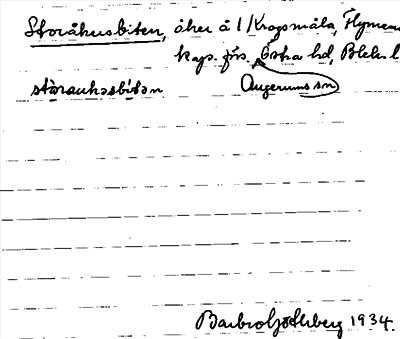 Storåkersbiten, åker å 1/ Kragsmåla, Flymens
kaps. förs. Östra hd, Blek. l
stòrauhəsbítən Augerums sn
Barbro Götherberg 1934.